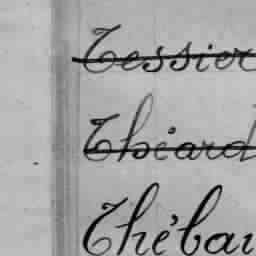 Tessier
Théard
Thébau